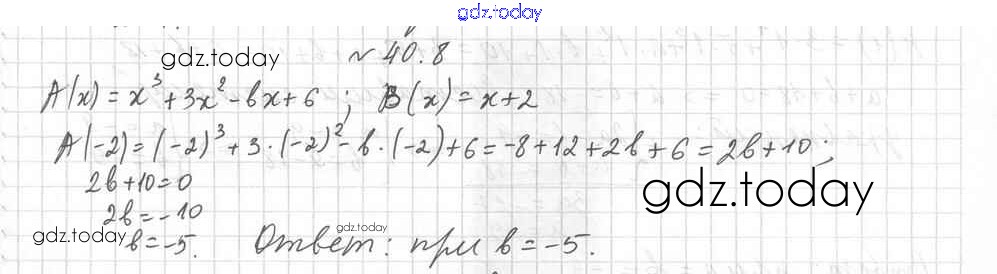 gdz.today
gdz.today
№ 40.8
A(x) = x³ + 3x² - bx + 6 ; B(x) = x + 2
A(-2) = (-2)³ + 3 · (-2)² - b · (-2) + 6 = -8 + 12 + 2b + 6 = 2b + 10 ;
2b + 10 = 0
gdz.today
2b = -10
gdz.today
gdz.today
b = -5. Ответ: при b = -5.